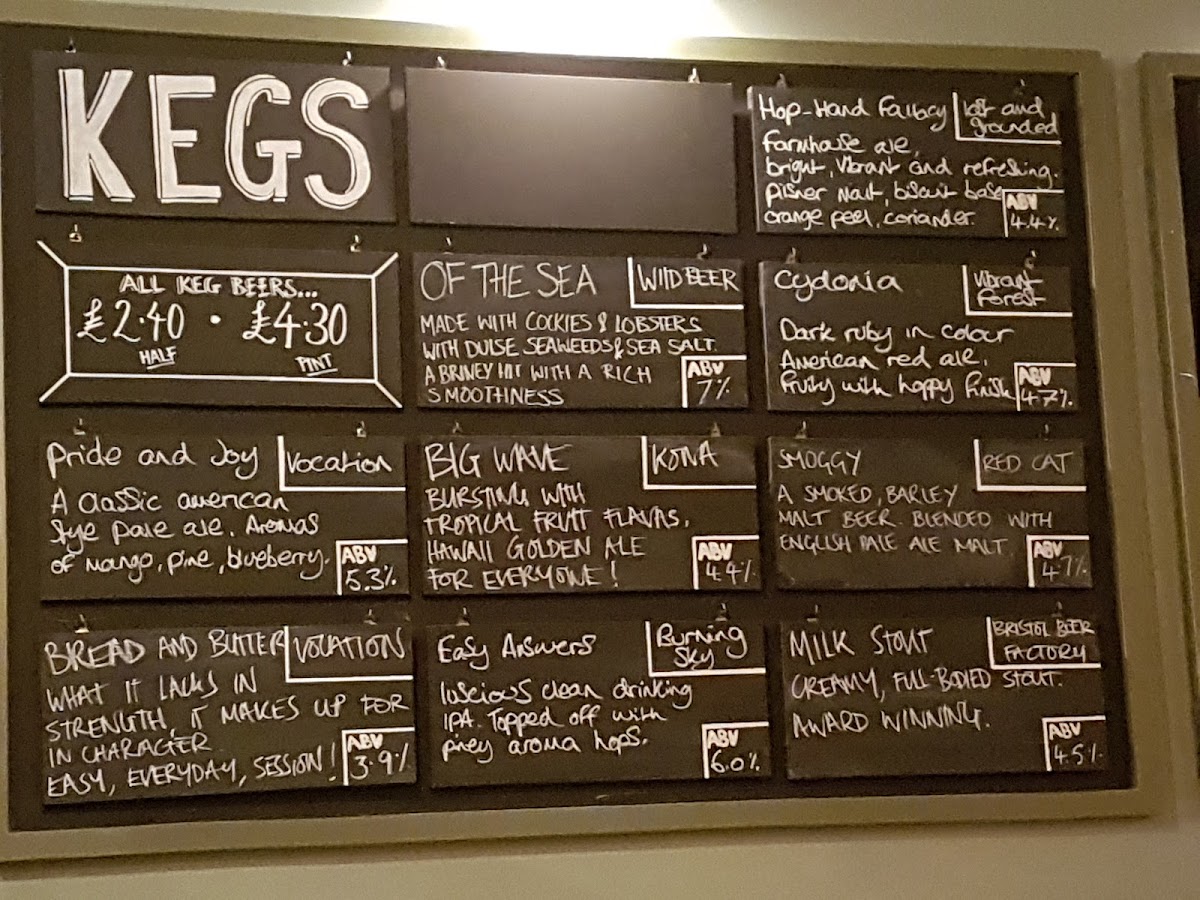 KEGS
Hop-Hand Fallacy
lost and
grounded
farmhouse ale,
bright, vibrant and refreshing.
Pilsner malt, biscuit base
orange peel, coriander.
ABV
4.4%
ALL KEG BEERS...
£2.40 • £4.30
HALF
PINT
OF THE SEA
WILD BEER
MADE WITH COCKLES & LOBSTERS
WITH DULSE SEAWEEDS & SEA SALT.
A BRINEY HIT WITH A RICH
SMOOTHNESS
ABV
7%
Cydonia
Vibrant
Forest
Dark ruby in colour
American red ale.
Fruity with hoppy finish
ABV
4.7%
Pride and Joy
Vocation
A classic american
stye pale ale. Aromas
of mango, pine, blueberry.
ABV
5.3%
BIG WAVE
KONA
BURSTING WITH
TROPICAL FRUIT FLAVAS.
HAWAII GOLDEN ALE
FOR EVERYONE!
ABV
4.4%
SMOGGY
RED CAT
A SMOKED, BARLEY
MALT BEER. BLENDED WITH
ENGLISH PALE ALE MALT.
ABV
4.7%
BREAD AND BUTTER
VOCATION
WHAT IT LACKS IN
STRENGTH, IT MAKES UP FOR
IN CHARACTER.
EASY, EVERYDAY, SESSION!
ABV
3.9%
Easy Answers
Burning
Sky
luscious clean drinking
IPA. Topped off with
piney aroma hops.
ABV
6.0%
MILK STOUT
BRISTOL BEER
FACTORY
CREAMY, FULL-BODIED STOUT.
AWARD WINNING.
ABV
4.5%